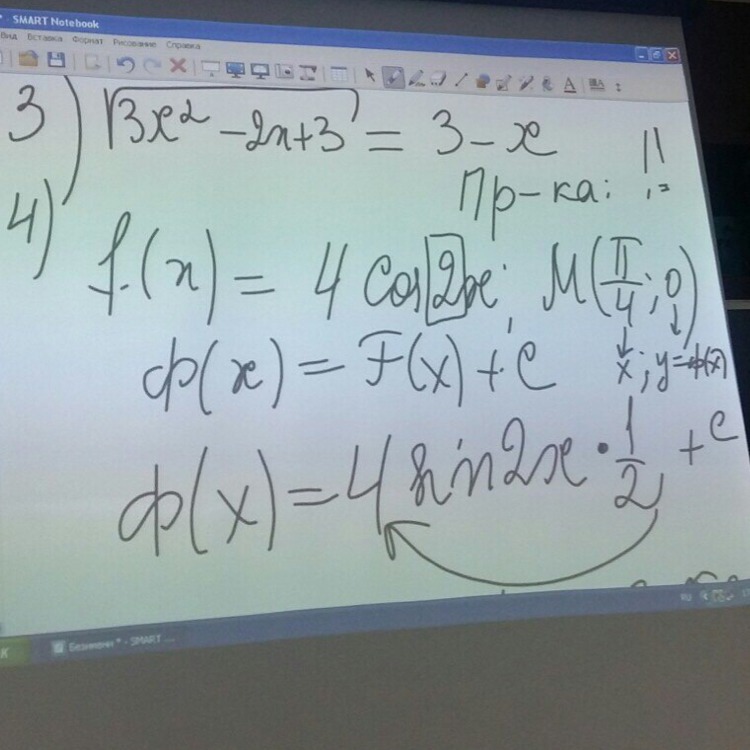 SMART Notebook
Вид Вставка Формат Рисование Справка
3) √3x² - 2x + 3 = 3 - x
Пр-ка:
4) f(x) = 4 cos 2x; M(π/4; 0)
Ф(x) = F(x) + C x; y=Ф(x)
Ф(x) = 4 sin 2x · 1/2 + C
RU
SMART ...